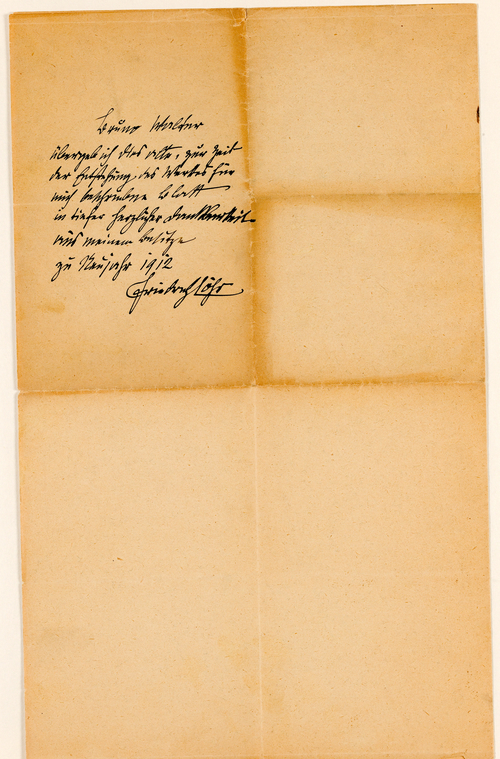 Bruno Walter
übergeb ich dies alte, zur Zeit
der Entstehung des Werkes für
mich beschriebene Blatt
in tiefer herzlicher Dankbarkeit
aus meinem Besitze
zu Neujahr 1912
Friedrich Löhr